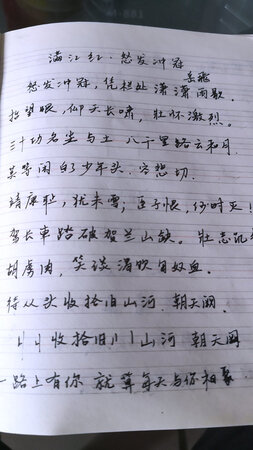 满江红·怒发冲冠
岳飞
怒发冲冠，凭栏处潇潇雨歇。
抬望眼，仰天长啸，壮怀激烈。
三十功名尘与土 八千里路云和月
莫等闲白了少年头，空悲切
靖康耻，犹未雪，臣子恨，何时灭！
驾长车踏破贺兰山缺。壮志饥
胡虏肉，笑谈渴饮匈奴血。
待从头收拾旧山河，朝天阙。
收拾旧山河 朝天阙
一路上有你 就算每天与你相